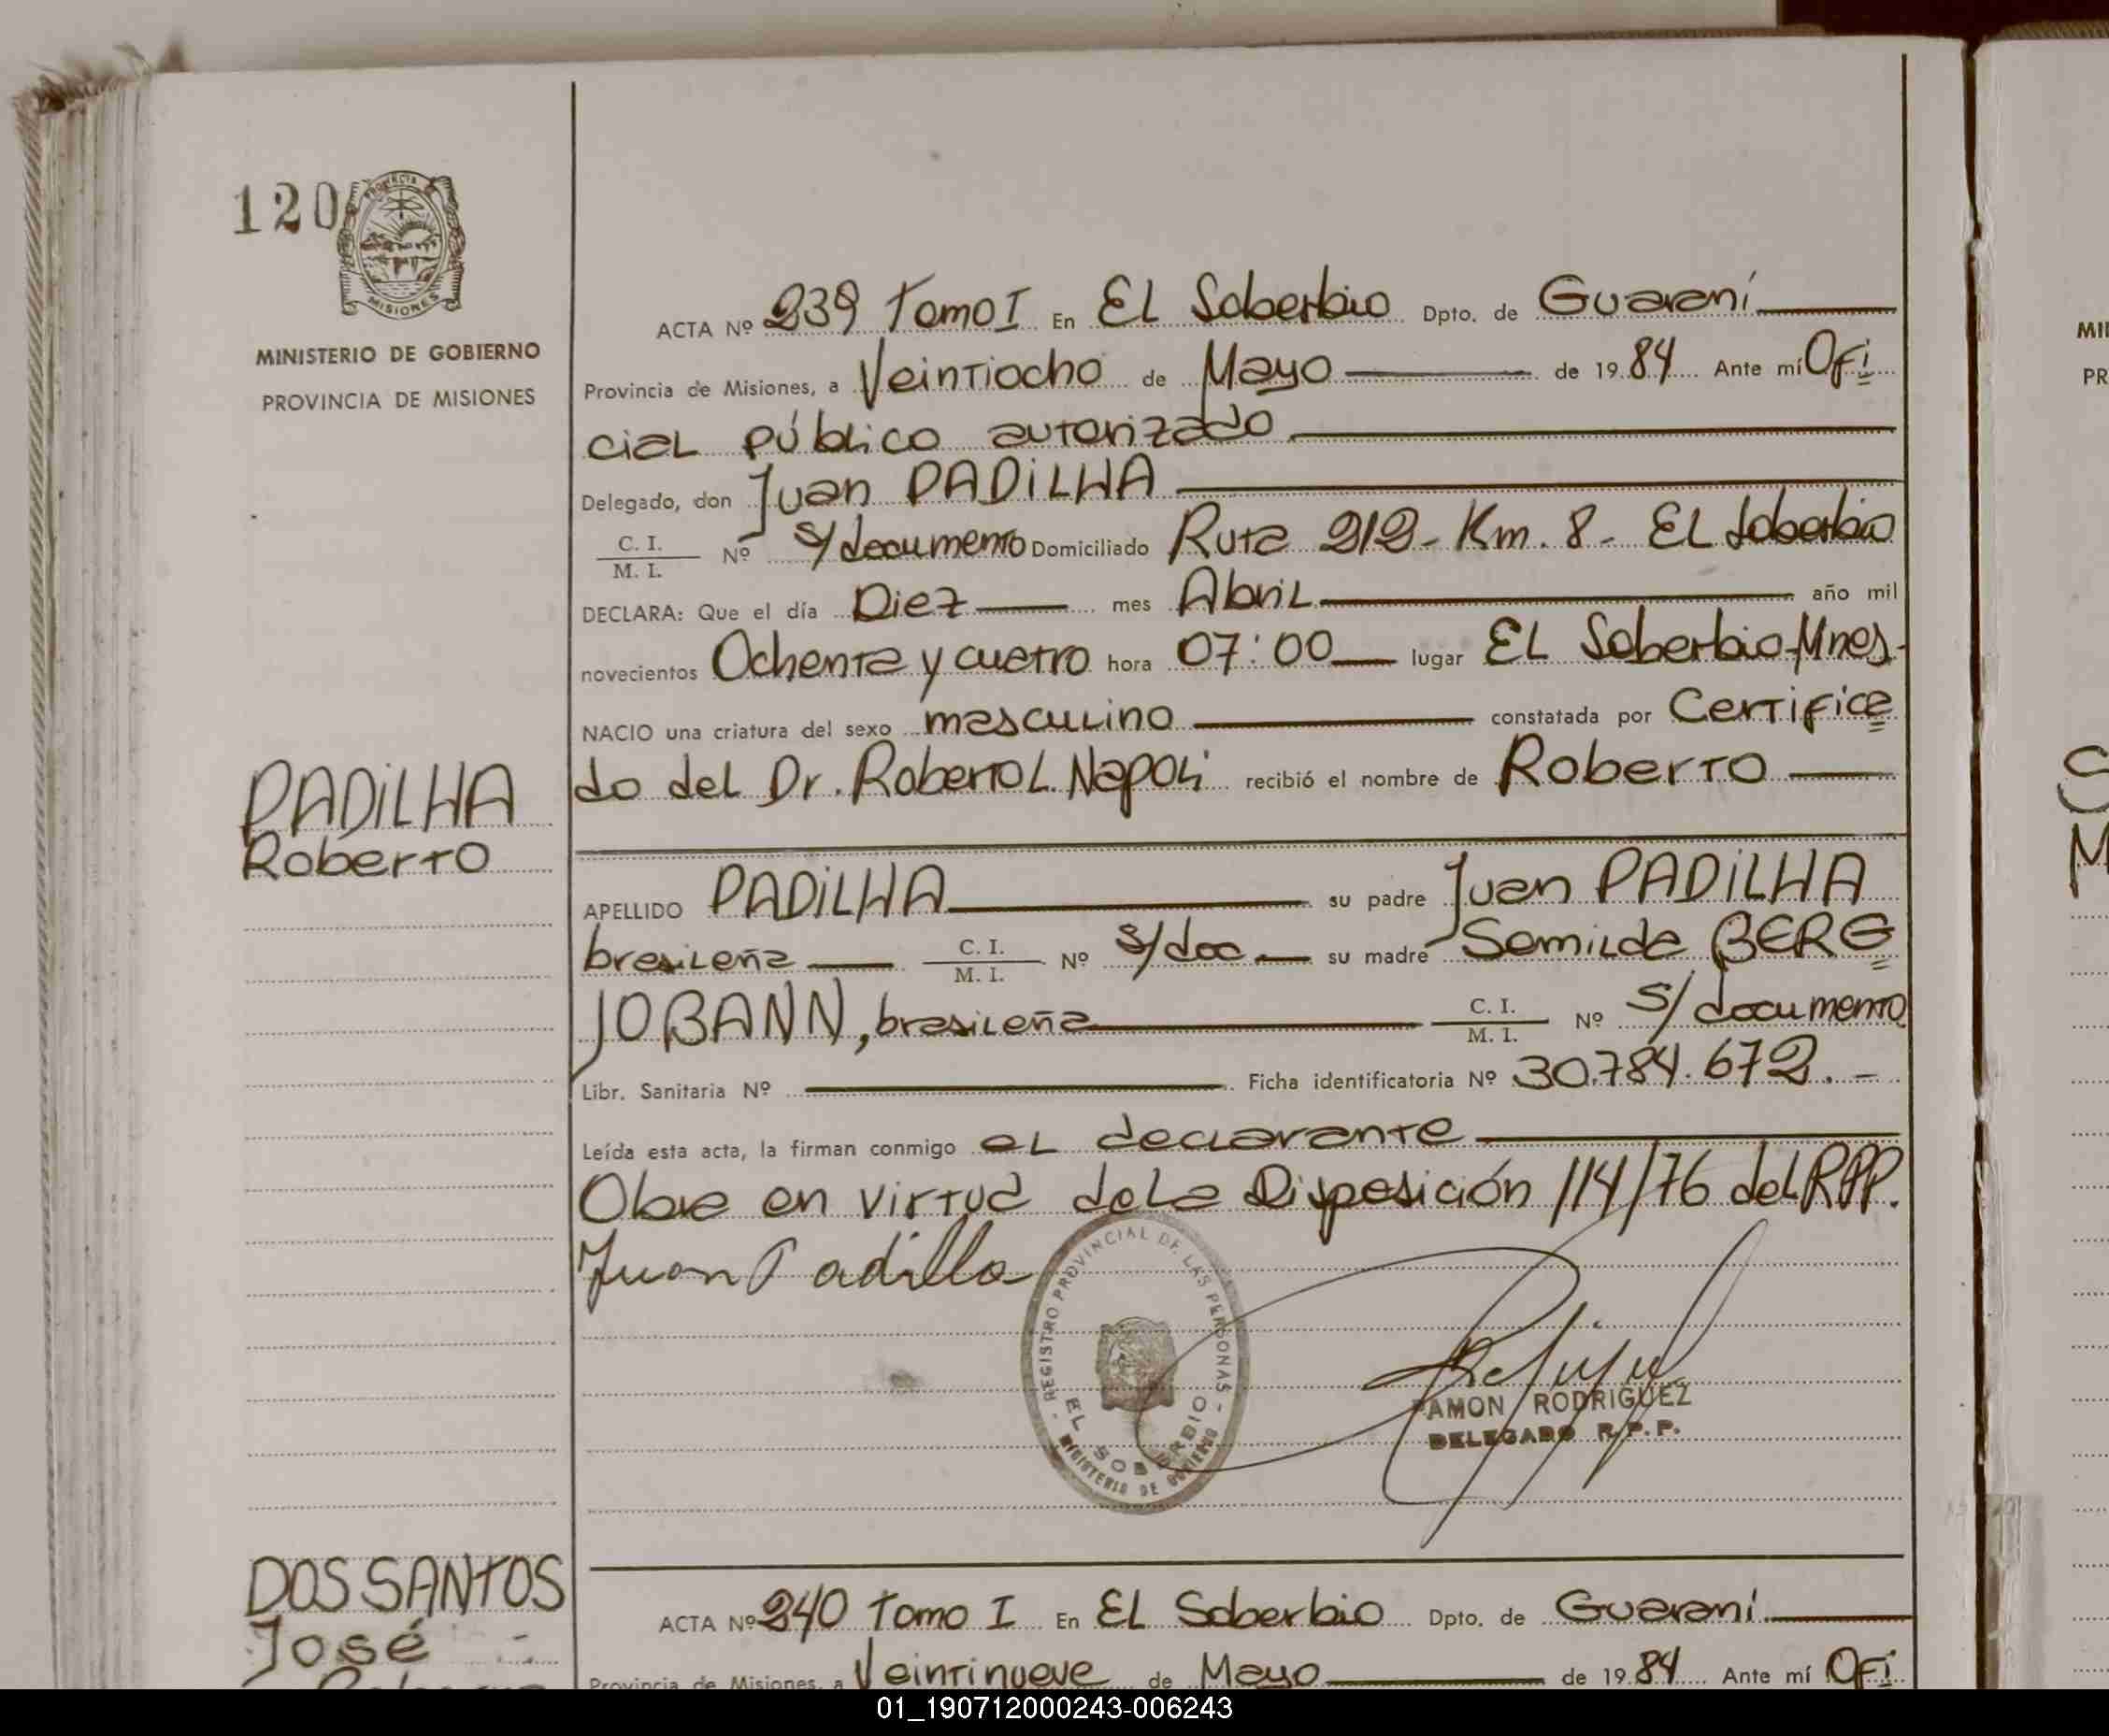 120
PROVINCIA DE
MISIONES
MINISTERIO DE GOBIERNO
PROVINCIA DE MISIONES
PADILHA
Roberto
ACTA Nº 239 Tomo I En EL Soberbio Dpto. de Guaraní
Provincia de Misiones, a Veintiocho de Mayo de 1984 Ante mí Ofi
cial público autorizado
Delegado, don Juan PADILHA
C. I.
M. I. Nº s/documento Domiciliado Ruta 212 - Km. 8 - EL Soberbio
DECLARA: Que el día Diez mes Abril año mil
novecientos Ochenta y cuatro hora 07:00 lugar EL Soberbio-Mnes-
NACIO una criatura del sexo masculino constatada por Certifica
do del Dr. Roberto L. Napoli recibió el nombre de Roberto
APELLIDO PADILHA su padre Juan PADILHA
brasileña C. I. M. I. Nº s/doc su madre Semilda BERG
JOBANN, brasileña C. I. M. I. Nº s/documento
Libr. Sanitaria Nº Ficha identificatoria Nº 30.784.672.-
Leída esta acta, la firman conmigo el declarante
Obra en virtud de la Disposición 114/76 del RPP.
Juan Padilla
REGISTRO PROVINCIAL DE LAS PERSONAS
EL SOBERBIO
MINISTERIO DE GOBIERNO
RAMON RODRIGUEZ
DELEGADO R.P.P.
DOS SANTOS
José
ACTA Nº 240 Tomo I En EL Soberbio Dpto. de Guaraní
Provincia de Misiones, a Veintinueve de Mayo de 1984 Ante mí Ofi
MI
PR
01_190712000243-006243